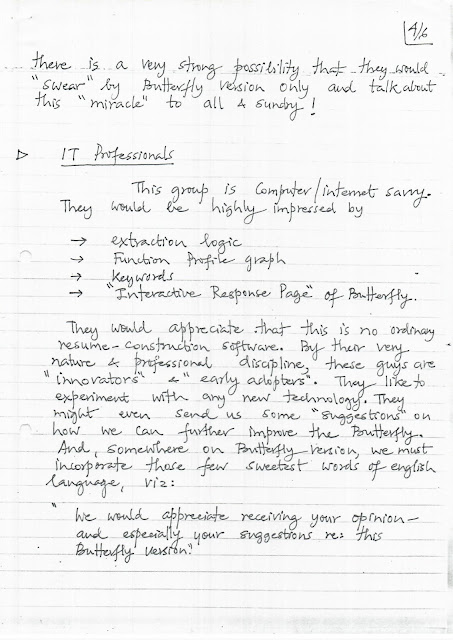 4/6
there is a very strong possibility that they would
"swear" by Butterfly version only and talk about
this "miracle" to all & sundry!
▷ IT Professionals
This group is Computer/internet savvy.
They would be highly impressed by
→ extraction logic
→ Function Profile graph
→ Keywords
→ "Interactive Response Page" of Butterfly.
They would appreciate that this is no ordinary
resume-construction software. By their very
nature & professional discipline, these guys are
"innovators" & "early adopters". They like to
experiment with any new technology. They
might even send us some "suggestions" on
how we can further improve the Butterfly.
And, somewhere on Butterfly version, we must
incorporate those few sweetest words of english
language, viz:
"We would appreciate receiving your opinion—
and especially your suggestions re: this
Butterfly version."